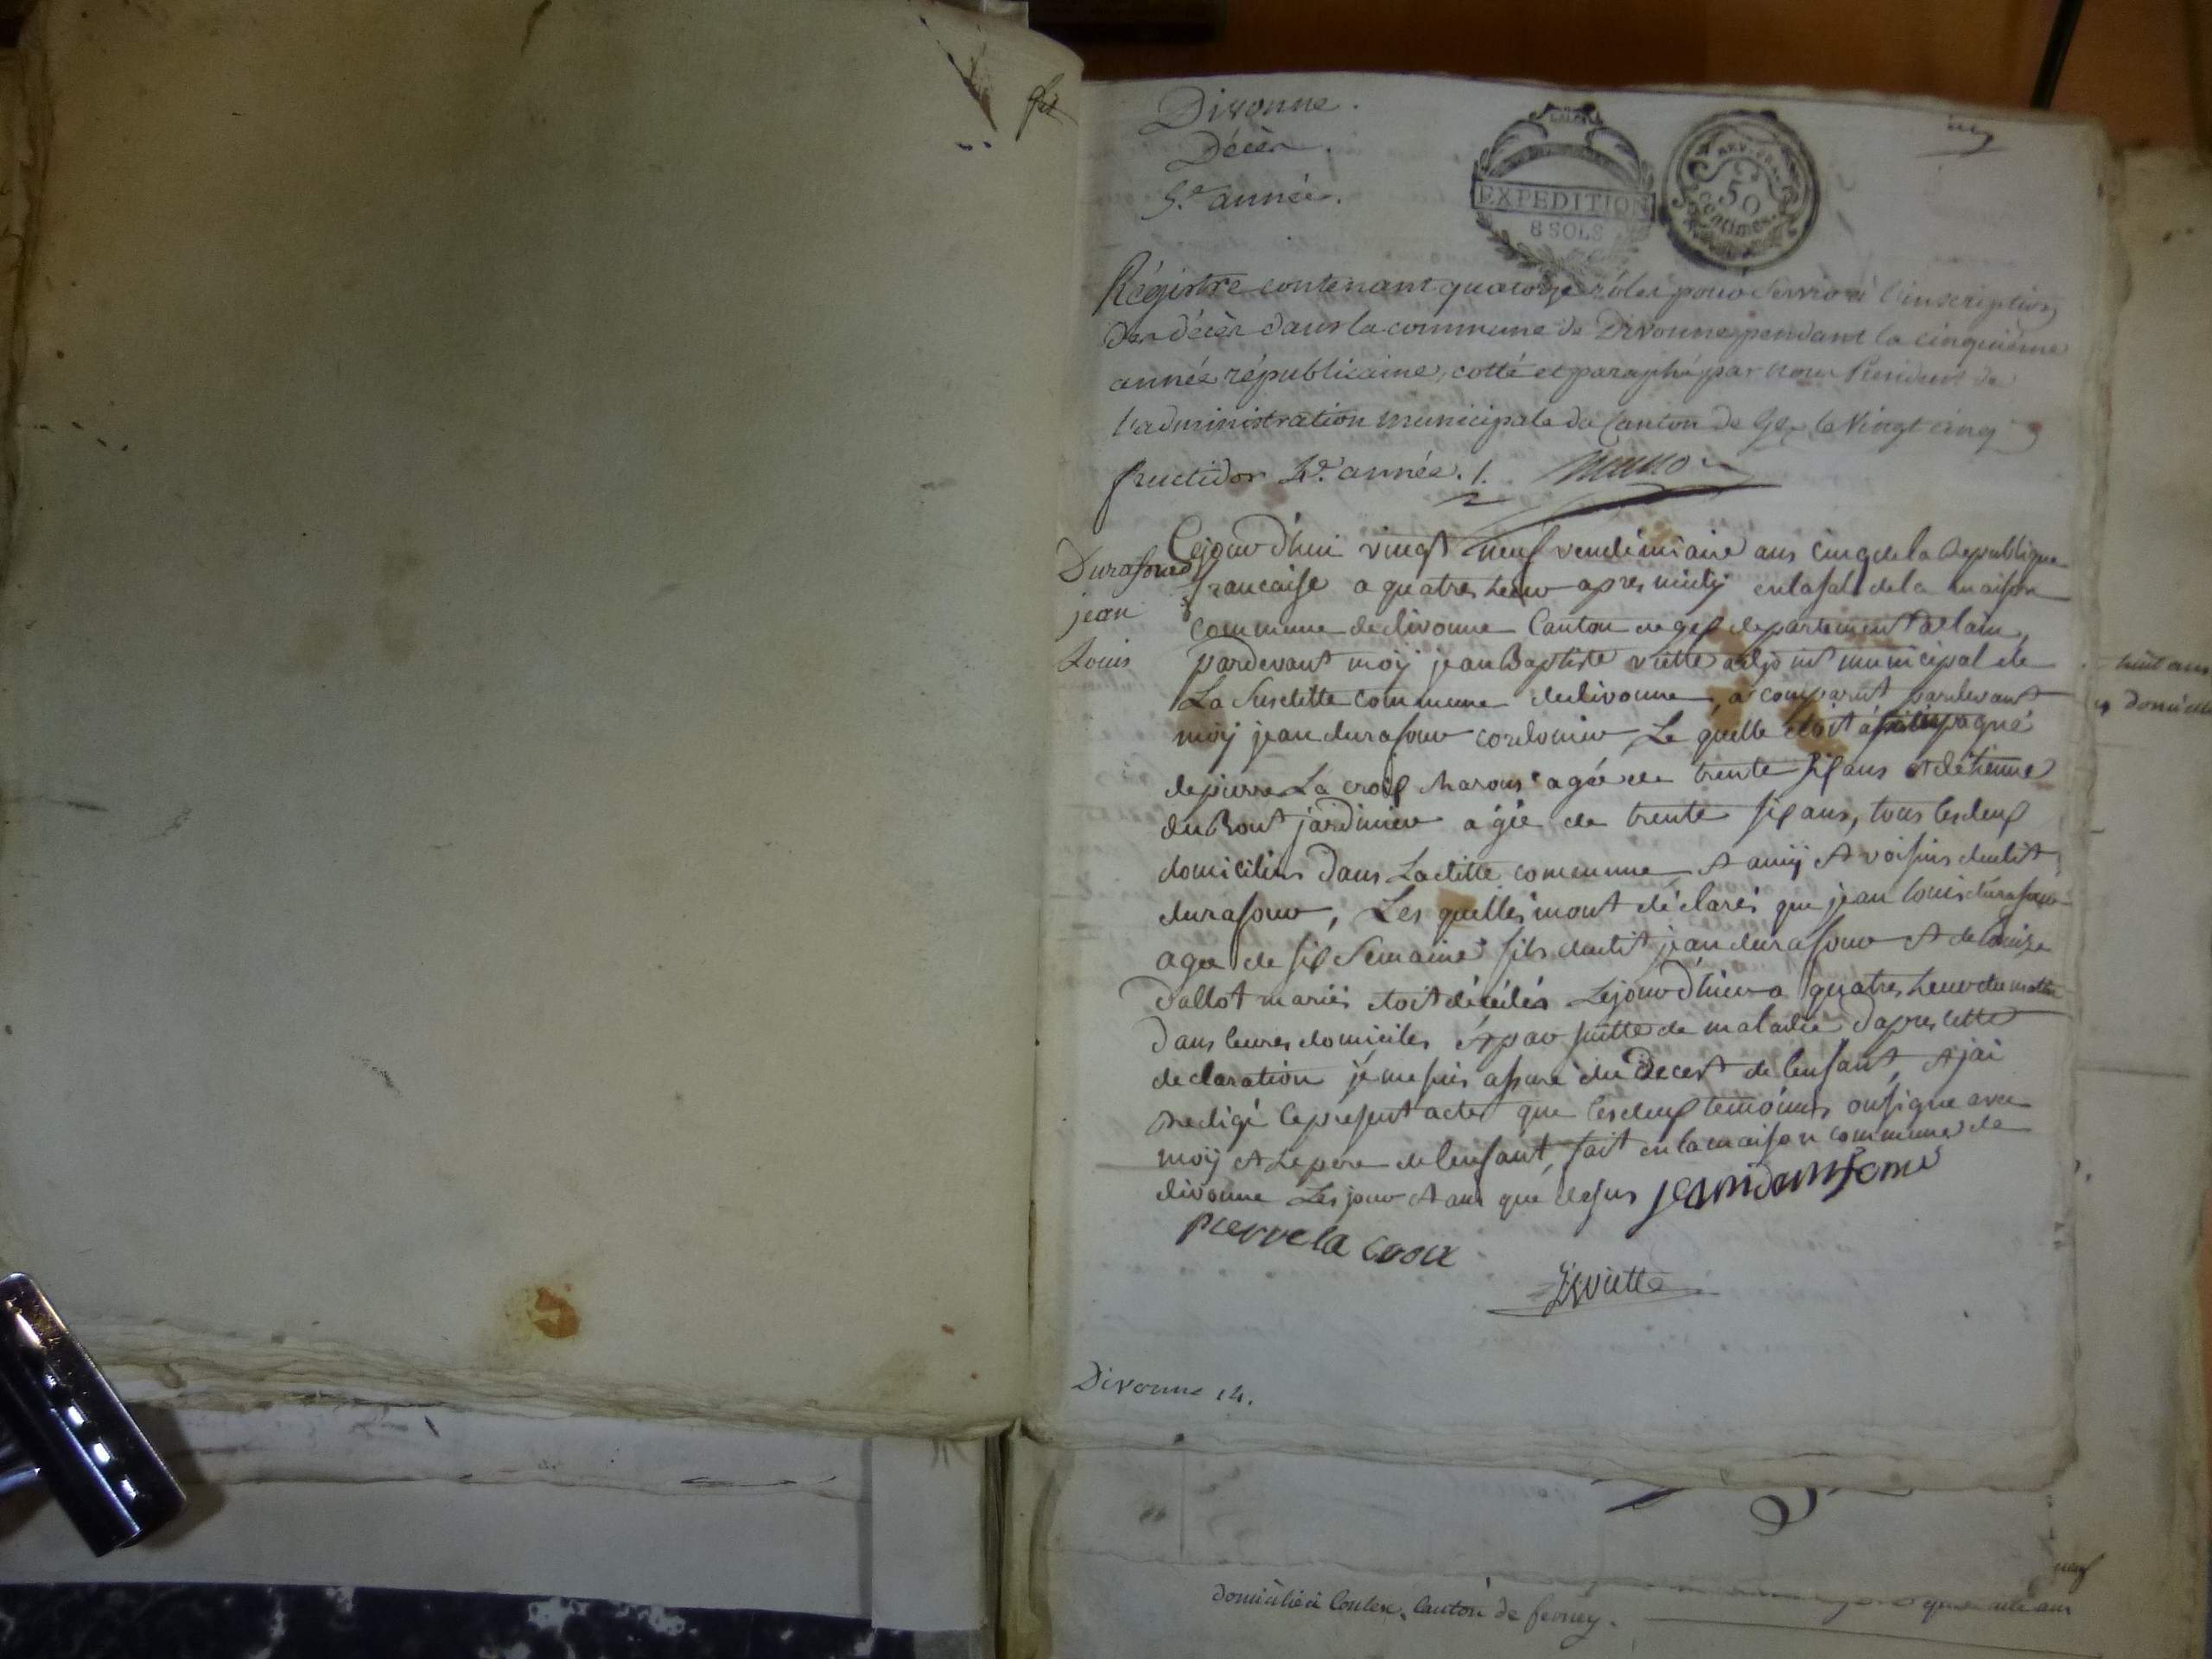 Divonne.
Décès.
5.e année.
EXPEDITION
8 SOLS
50
centimes
Régistre contenant quatorze rôles pour servir à l'inscription
des décès dans la commune de Divonne pendant la cinquième
année républicaine, cotté et paraphé par nous Président de
l'administration municipale du Canton de Gex le Vingt cinq
fructidor 4.e année. /.
Durafour
jean
Louis
Cejourd'hui vingt neuf vendémiaire ans cinq de la Republique
francaise a quatres heur apres midy en la sale de la maison
commune de divonne Canton de gex departement de lain,
pardevant moÿ jean Baptiste viette adjoint municipal de
La Susditte commune de divonne, a comparut pardevant
moÿ jean durafour cordonier Le quelle étoit acompagné
de pierre La croix agée de trente six ans et détienne
dumont jardinier agée de trente six ans, tous les deux
domiciliés dans Laditte commune et amÿ et voisins dudit
durafour, Les quelles mont déclarés que jean louis durafour
agée de six Semaine fils dudit jean durafour et de Louize
Dallot mariés étoit décédés Lejour d'hier a quatres heur du matin
Dans leures domiciles et par suitte de maladie Dapres cette
declaration je me suis assuré du Decest de lenfant, et jai
redigé le present acte que les deux temóins on signe avec
moÿ et le pere de lenfant, fait en la maison commune de
divonne Les jour et ans que desus jean durafour
pierre la croix
JB viette
Divonne 14.
huit ans
domicilié à Coulex, Canton de ferney.
neuf